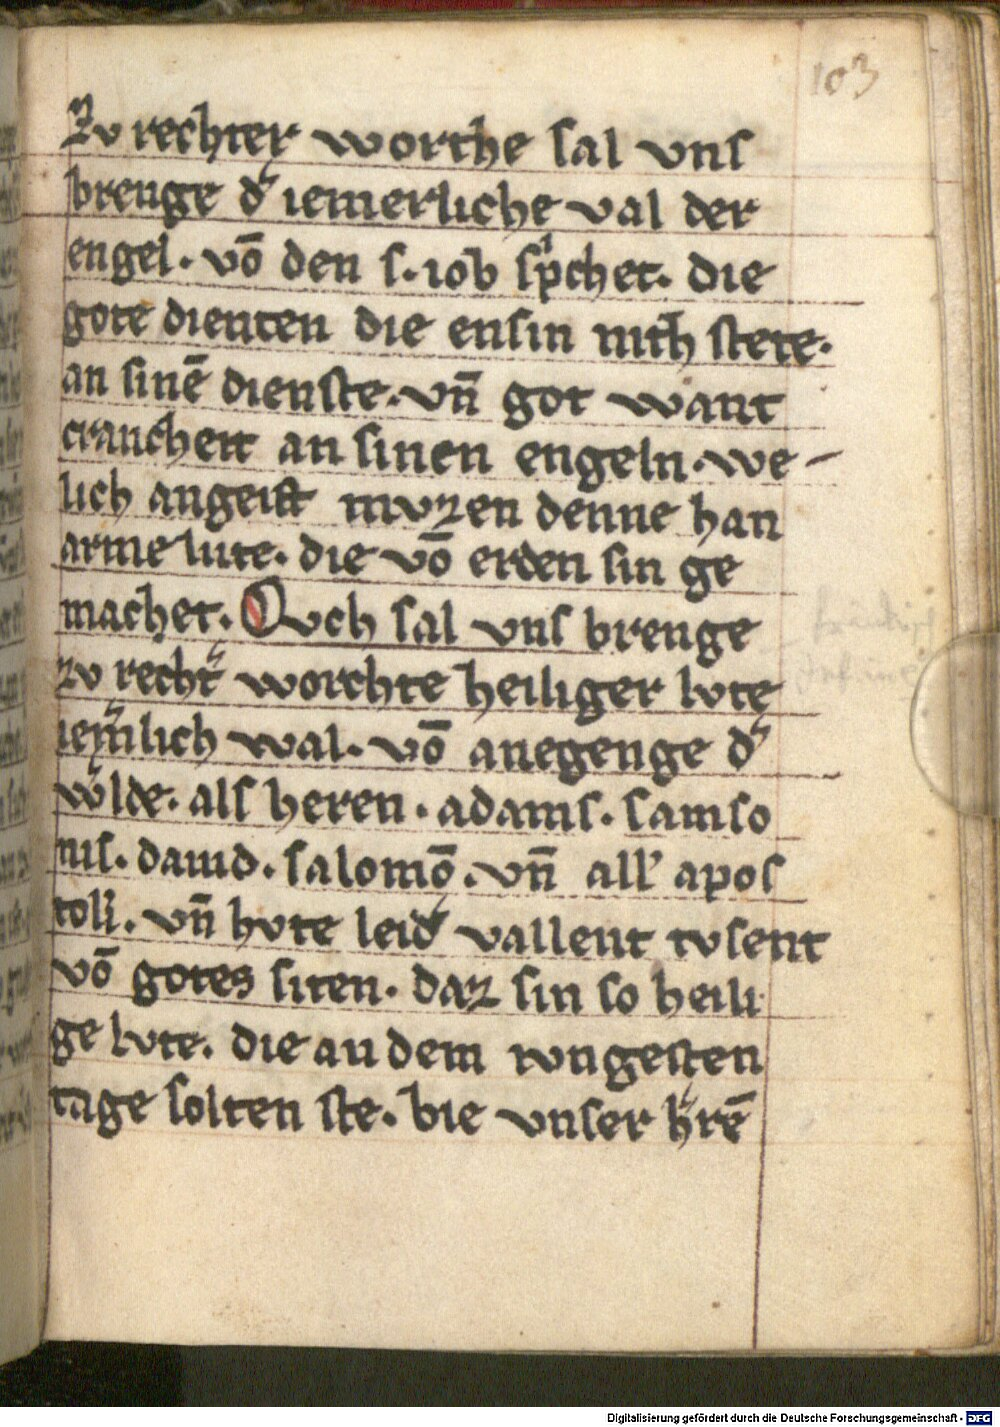 103
Zv rechter worthe sal vns
brenge d͛ iemerliche val der
engel. vō den s. iob sp̍chet. die
gote dienten die ensin nith stete.
an sinē dienste. vn̄ got want
crancheit an sinen engeln. we-
lich angeist mvzen denne han
arme lute. die vō erden sin ge
machet. Ovch sal vns brenge
zv recht͛ worchte heiliger lvte
iem͛lich wal. vō anegenge d͛
w͛lde. als heren. adams. samso
nis. dauid. salomō. vn̄ all͛ apos
toli. vn̄ hvte leid͛ vallent tvsent
vō gotes siten. daz sin so heili
ge lvte. die an dem iungesten
tage solten ste. bie vnser h͛rē
Digitalisierung gefördert durch die Deutsche Forschungsgemeinschaft - DFG